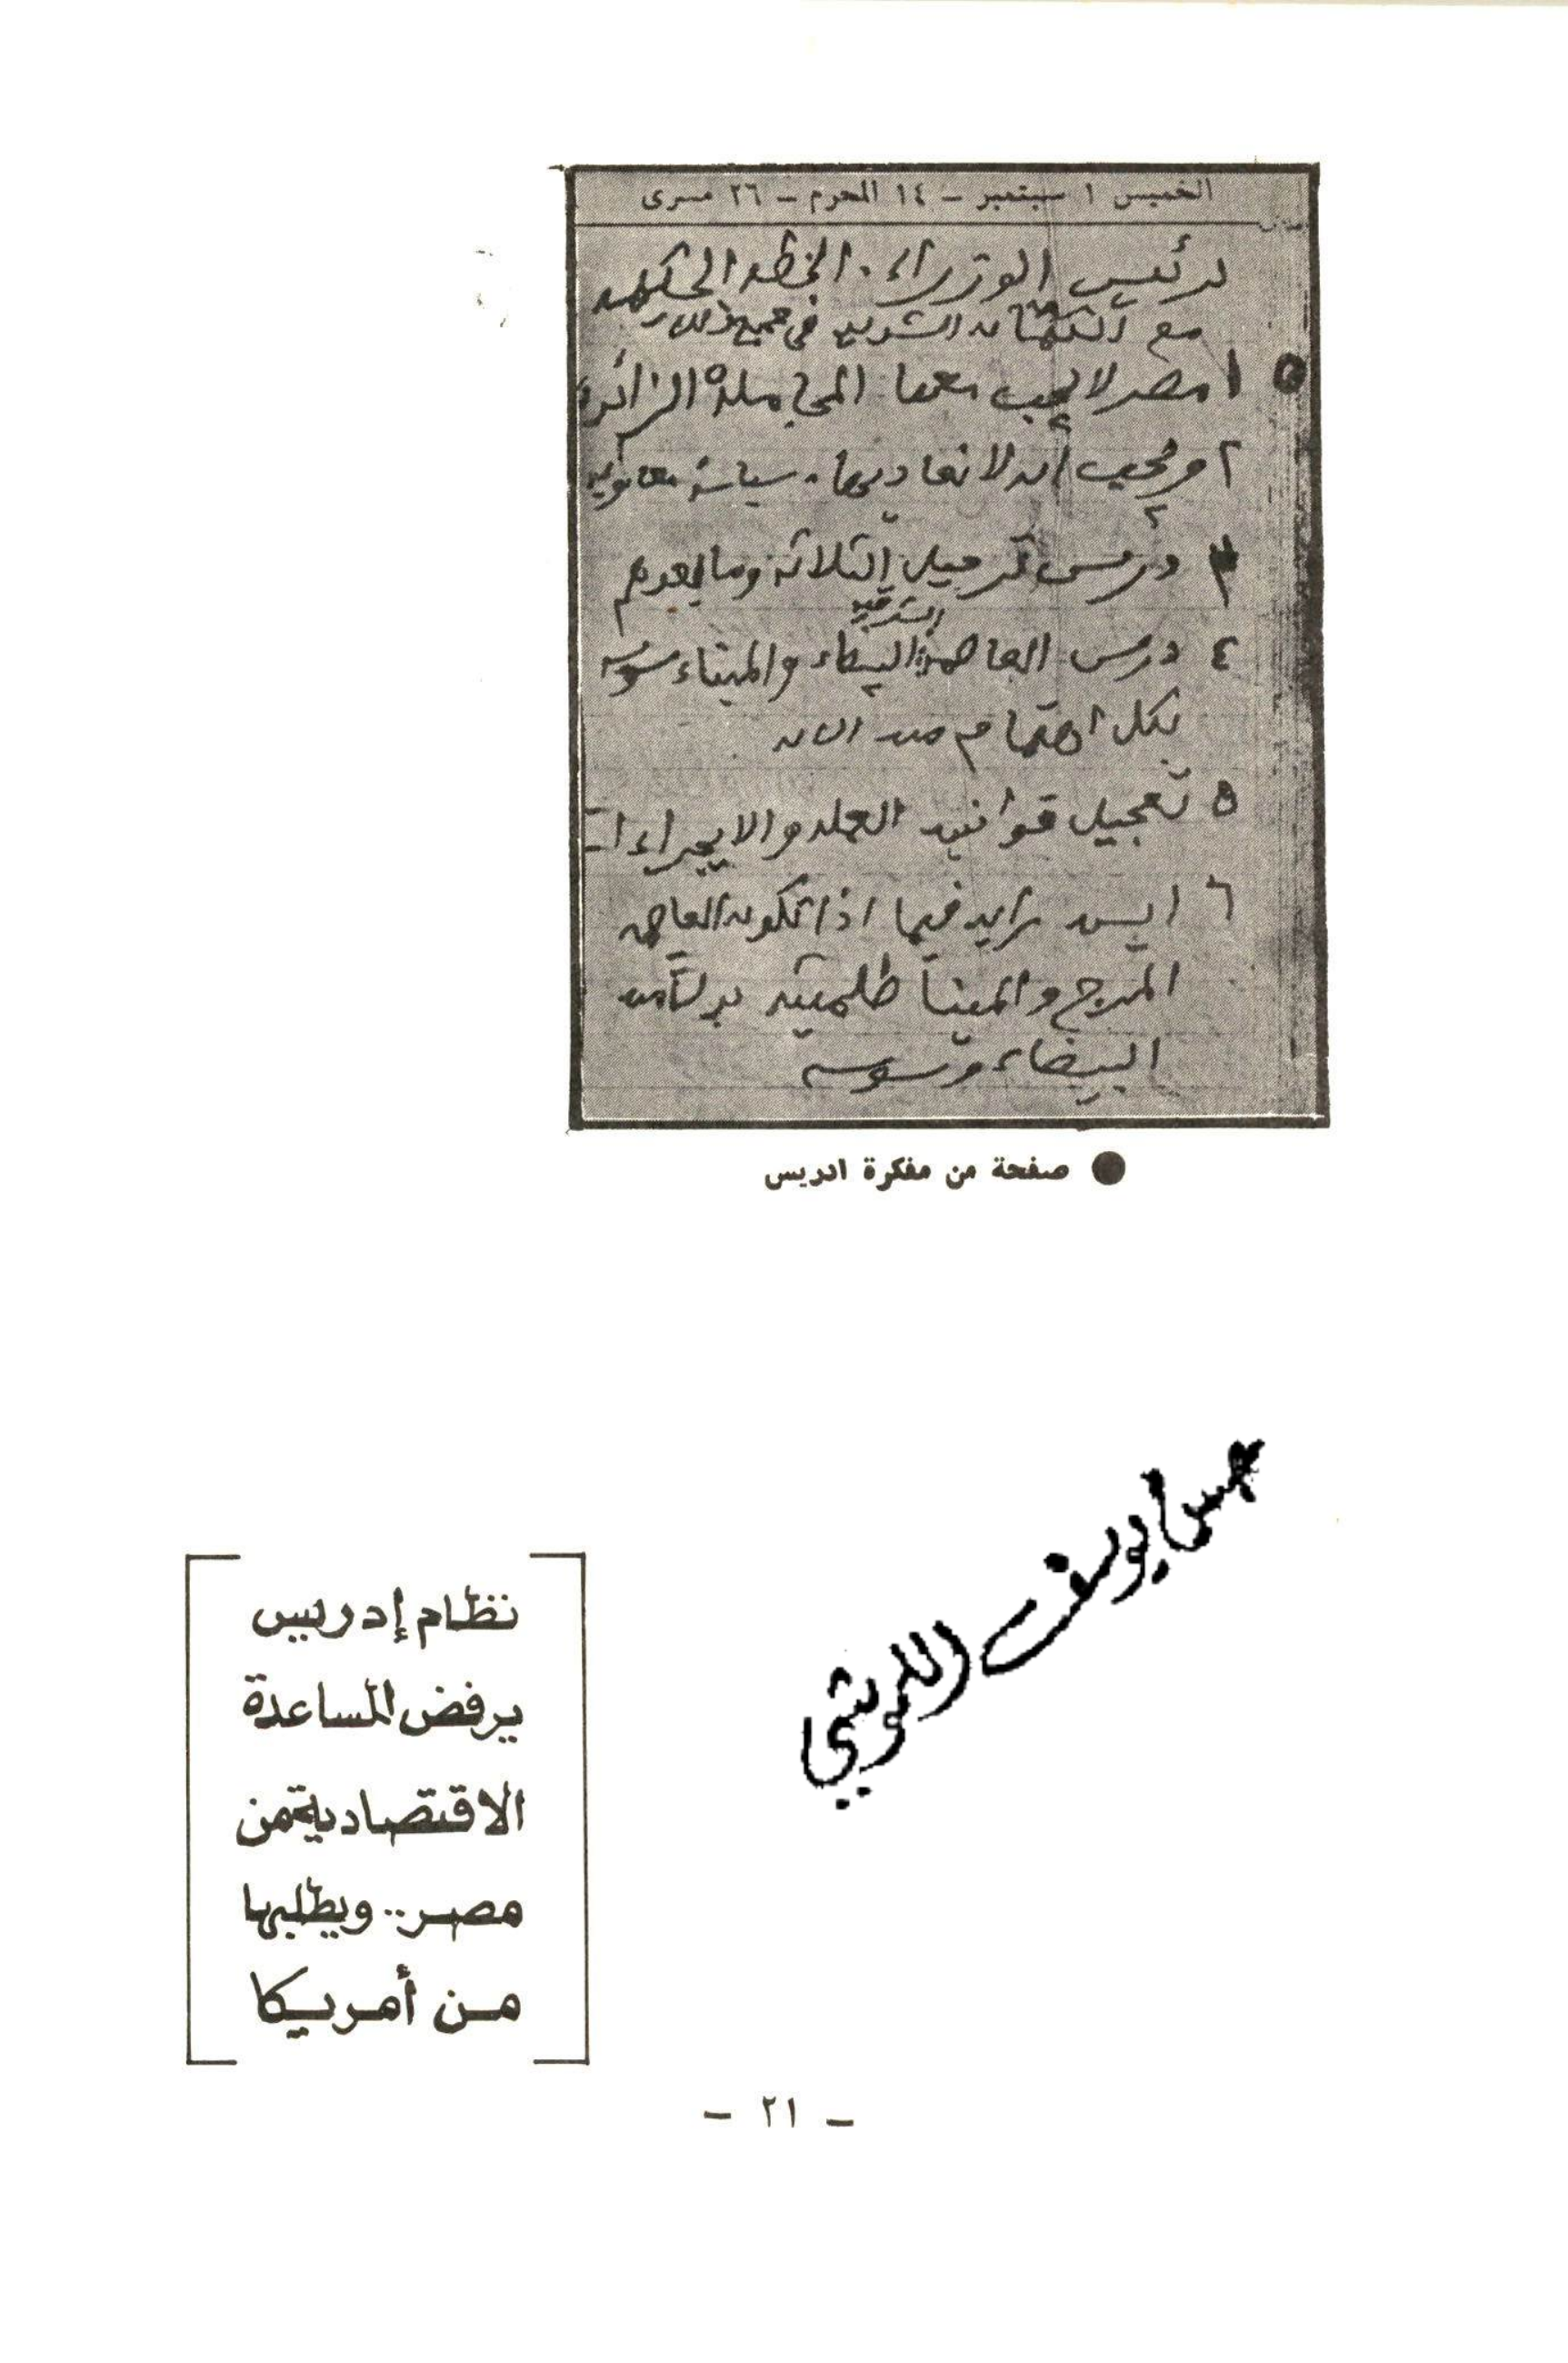 الخميس ١ سبتمبر - ١٤ المحرم - ٢٦ مسرى
لرئيس الوزراء. الخطه الحكيمه
مع الكتمان الشديد في جميع ذلك
١ مصر لا يجب معها المجاملة الزائدة
٢ ويجب أن لا نعاديها. سياسة
٣ درس ترحيل الثلاثة وما بعدهم
الشرقيه
٤ درس العاصمة البيضاء والميناء سوسه
بكل اهتمام من الان
٥ تعجيل قوانين العمله والايجراءات
٦ ايس رايه فيما اذا تكون العاصمه
المرج والمينا طلميثه بدلا من
البيضاء وسوسه
● صفحة من مفكرة ادريس
يوسف
نظام إدريس
يرفض المساعدة
الاقتصادية من
مصر.. ويطلبها
من أمريكا
- ٢١ -